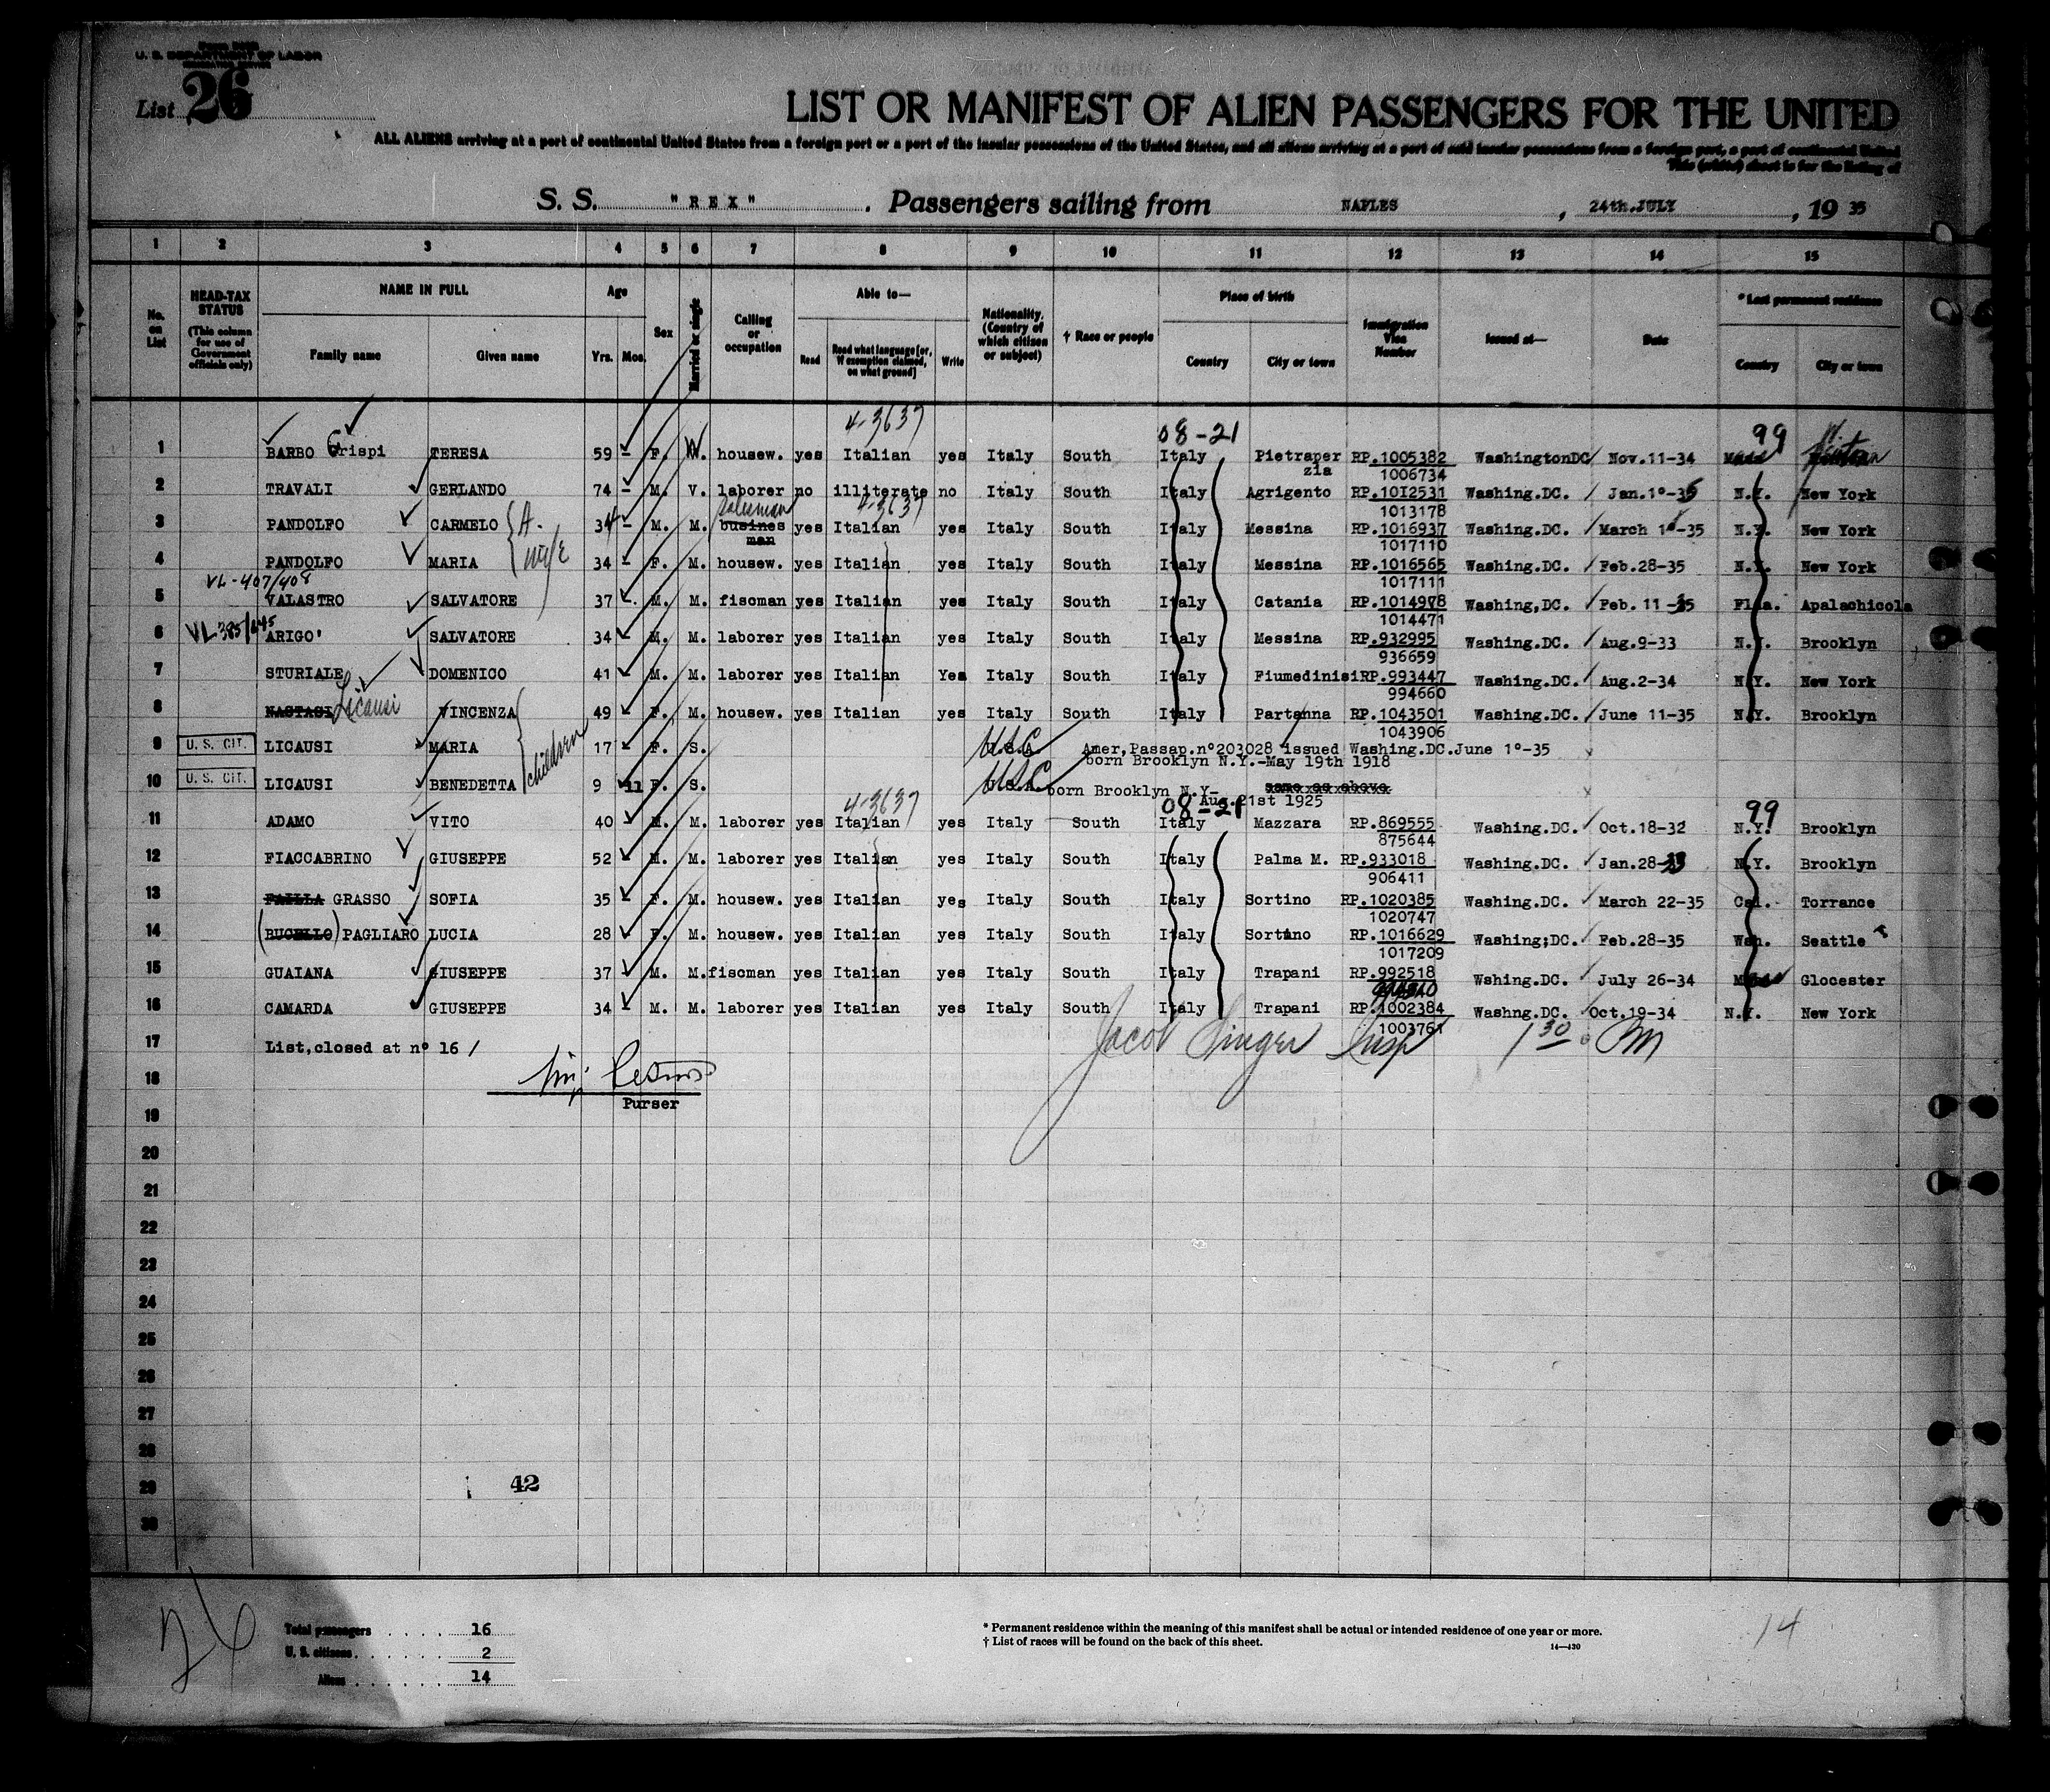 U. S. DEPARTMENT OF LABOR
List 26
LIST OR MANIFEST OF ALIEN PASSENGERS FOR THE UNITED
ALL ALIENS arriving at a port of continental United States from a foreign port or a port of the insular possessions of the United States, and all aliens arriving at a port of said insular possessions from a foreign port, a port of continental United
This (white) sheet is for the listing of
S. S. "REX". Passengers sailing from NAPLES, 24th.JULY, 19 35
1 2 3 4 5 6 7 8 9 10 11 12 13 14 15
No. on List
HEAD-TAX STATUS (This column for use of Government officials only)
NAME IN FULL Family name Given name
Age Yrs. Mos.
Sex
Married or single
Calling or occupation
Able to— Read Read what language [or, if exemption claimed, on what ground] Write
Nationality. (Country of which citizen or subject)
† Race or people
Place of birth Country City or town
Immigration Visa Number
Issued at—
Date
* Last permanent residence Country City or town
4-3637 08-21 99
1 BARBO Crispi TERESA 59 - F. W. housew. yes Italian yes Italy South Italy Pietraperzia RP.1005382 1006734 WashingtonDC Nov.11-34
2 TRAVALI GERLANDO 74 - M. V. laborer no illiterate no Italy South Italy Agrigento RP.1012531 1013178 Washing.DC. Jan.1°-35 N.Y. New York
salesman 4-3637
3 PANDOLFO CARMELO 34 - M. M. busines man yes Italian yes Italy South Italy Messina RP.1016937 1017110 Washing.DC. March 1°-35 N.Y. New York
wife
4 PANDOLFO MARIA 34 - F. M. housew. yes Italian yes Italy South Italy Messina RP.1016565 1017111 Washing.DC. Feb.28-35 N.Y. New York
VL-407/408
5 VALASTRO SALVATORE 37 -. M. M. fiscman yes Italian yes Italy South Italy Catania RP.1014978 1014471 Washing,DC. Feb. 11-35 Fla. Apalachicola
VL385/445
6 ARIGO' SALVATORE 34 M. M. laborer yes Italian yes Italy South Italy Messina RP.932995 936659 Washing.DC. Aug.9-33 N.Y. Brooklyn
7 STURIALE DOMENICO 41 M. M. laborer yes Italian Yes Italy South Italy Fiumedinisi RP.993447 994660 Washing.DC. Aug.2-34 N.Y. New York
8 NASTASI Licausi VINCENZA 49 F. M. housew. yes Italian yes Italy South Italy Partanna RP.1043501 1043906 Washing.DC. June 11-35 N.Y. Brooklyn
children
9 U. S. CIT. LICAUSI MARIA 17 F. S. USC Amer,Passap.n°203028 issued Washing.DC.June 1°-35
born Brooklyn N.Y.-May 19th 1918
10 U. S. CIT. LICAUSI BENEDETTA 9 11 F. S. USC born Brooklyn N.Y- same as above
Aug.21st 1925
4-3637 08-21 99
11 ADAMO VITO 40 M. M. laborer yes Italian yes Italy South Italy Mazzara RP.869555 875644 Washing.DC. Oct.18-32 N.Y. Brooklyn
12 FIACCABRINO GIUSEPPE 52 M. M. laborer yes Italian yes Italy South Italy Palma M. RP.933018 906411 Washing.DC. Jan.28-33 N.Y. Brooklyn
13 FAILLA GRASSO SOFIA 35 F. M. housew. yes Italian yes Italy South Italy Sortino RP.1020385 1020747 Washing.DC. March 22-35 Cal. Torrance
14 (BUCELLO) PAGLIARO LUCIA 28 F. M. housew. yes Italian yes Italy South Italy Sortino RP.1016629 1017209 Washing;DC. Feb.28-35 Wsh. Seattle
15 GUAIANA GIUSEPPE 37 M. M. fiscman yes Italian yes Italy South Italy Trapani RP.992518 Wshing.DC. July 26-34 Glocester
16 CAMARDA GIUSEPPE 34 M. M. laborer yes Italian yes Italy South Italy Trapani RP.1002384 1003761 Washng.DC. Oct.19-34 N.Y. New York
17 List,closed at n° 16 / Jacob Singer Insp 1 30 PM
18
Purser
19
20
21
22
23
24
25
26
27
28
29 42
30
26
Total passengers 16
U. S. citizens 2
Aliens 14
* Permanent residence within the meaning of this manifest shall be actual or intended residence of one year or more.
† List of races will be found on the back of this sheet.
14—430
14